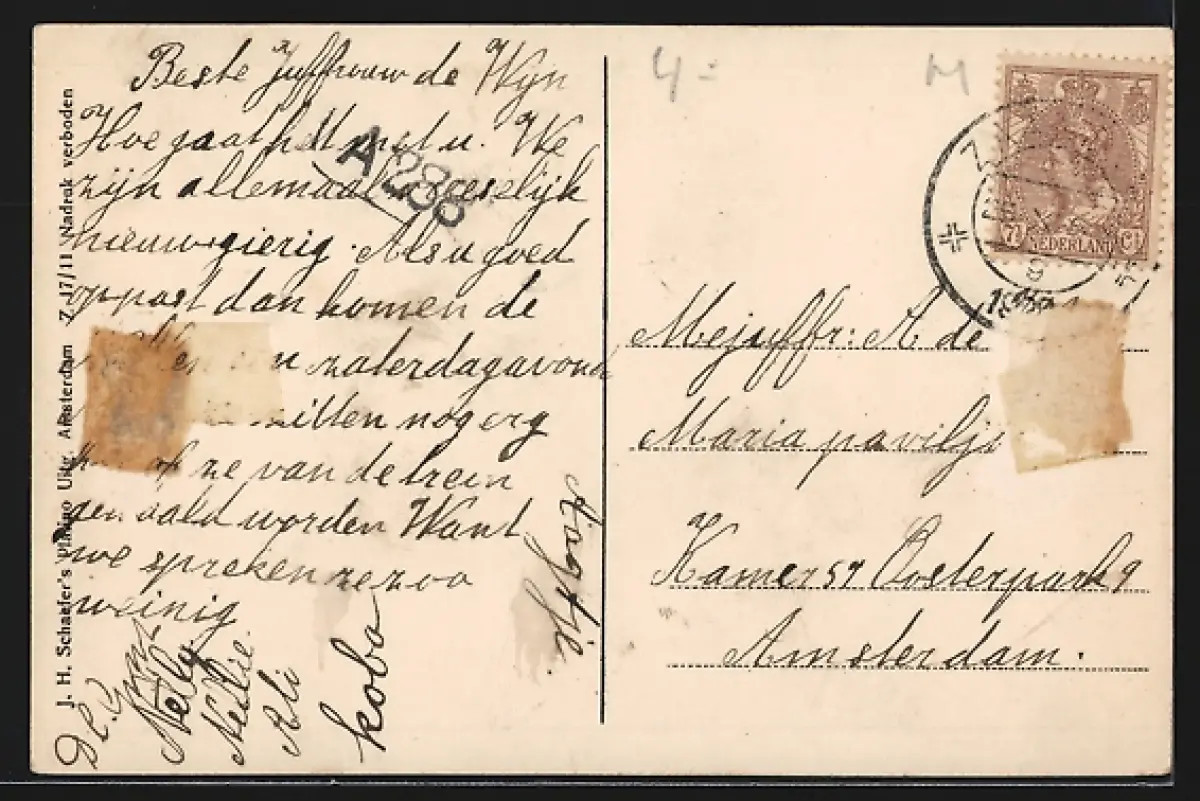 Beste Juffrouw de Wijn
Hoe gaat het met u. We
zijn allemaal vreeslijk
nieuwsgierig. Als u goed
oppast dan komen de
zaterdagavond
zitten nog erg
ze van de trein
worden Want
we spreken ze zoo
weinig
Nelly
Nellie.
Ali
Koba
Aagje.
J. H. Schaefer's Platino Uitg. Amsterdam Z 17/11 Nadruk verboden
A 288
4-
M
7½ NEDERLAND CT
Mejuffr: A de
Maria paviljo
Kamer 57 Oosterpark 9
Amsterdam.